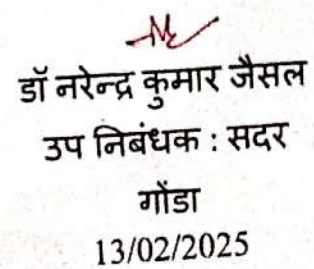 डॉ नरेन्द्र कुमार जैसल
उप निबंधक : सदर
गोंडा
13/02/2025